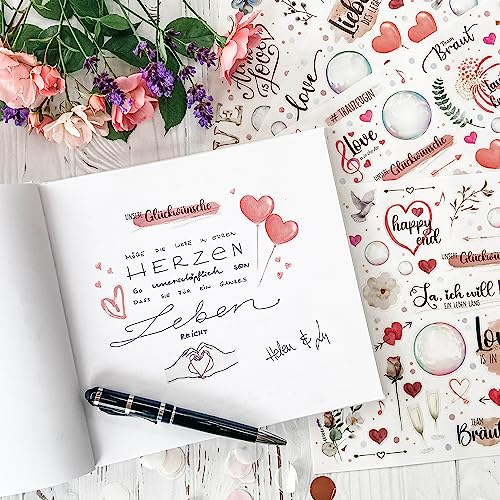 UNSERE Glückwünsche
MÖGE DIE LIEBE IN EUREN
HERZEN
SO unerschöpflich SEIN
DASS SIE FÜR EIN GANZES
Leben
REICHT
Helen & Lu
Liebe
love
TEAM Braut
#TRAUZEUGIN
Love
IS IN THE AIR
UNSERE Glückwünsche
happy
end
UNSERE Glückwünsche
Ja, ich will!
EIN LEBEN LANG
Love
IS IN
TEAM
Bräut